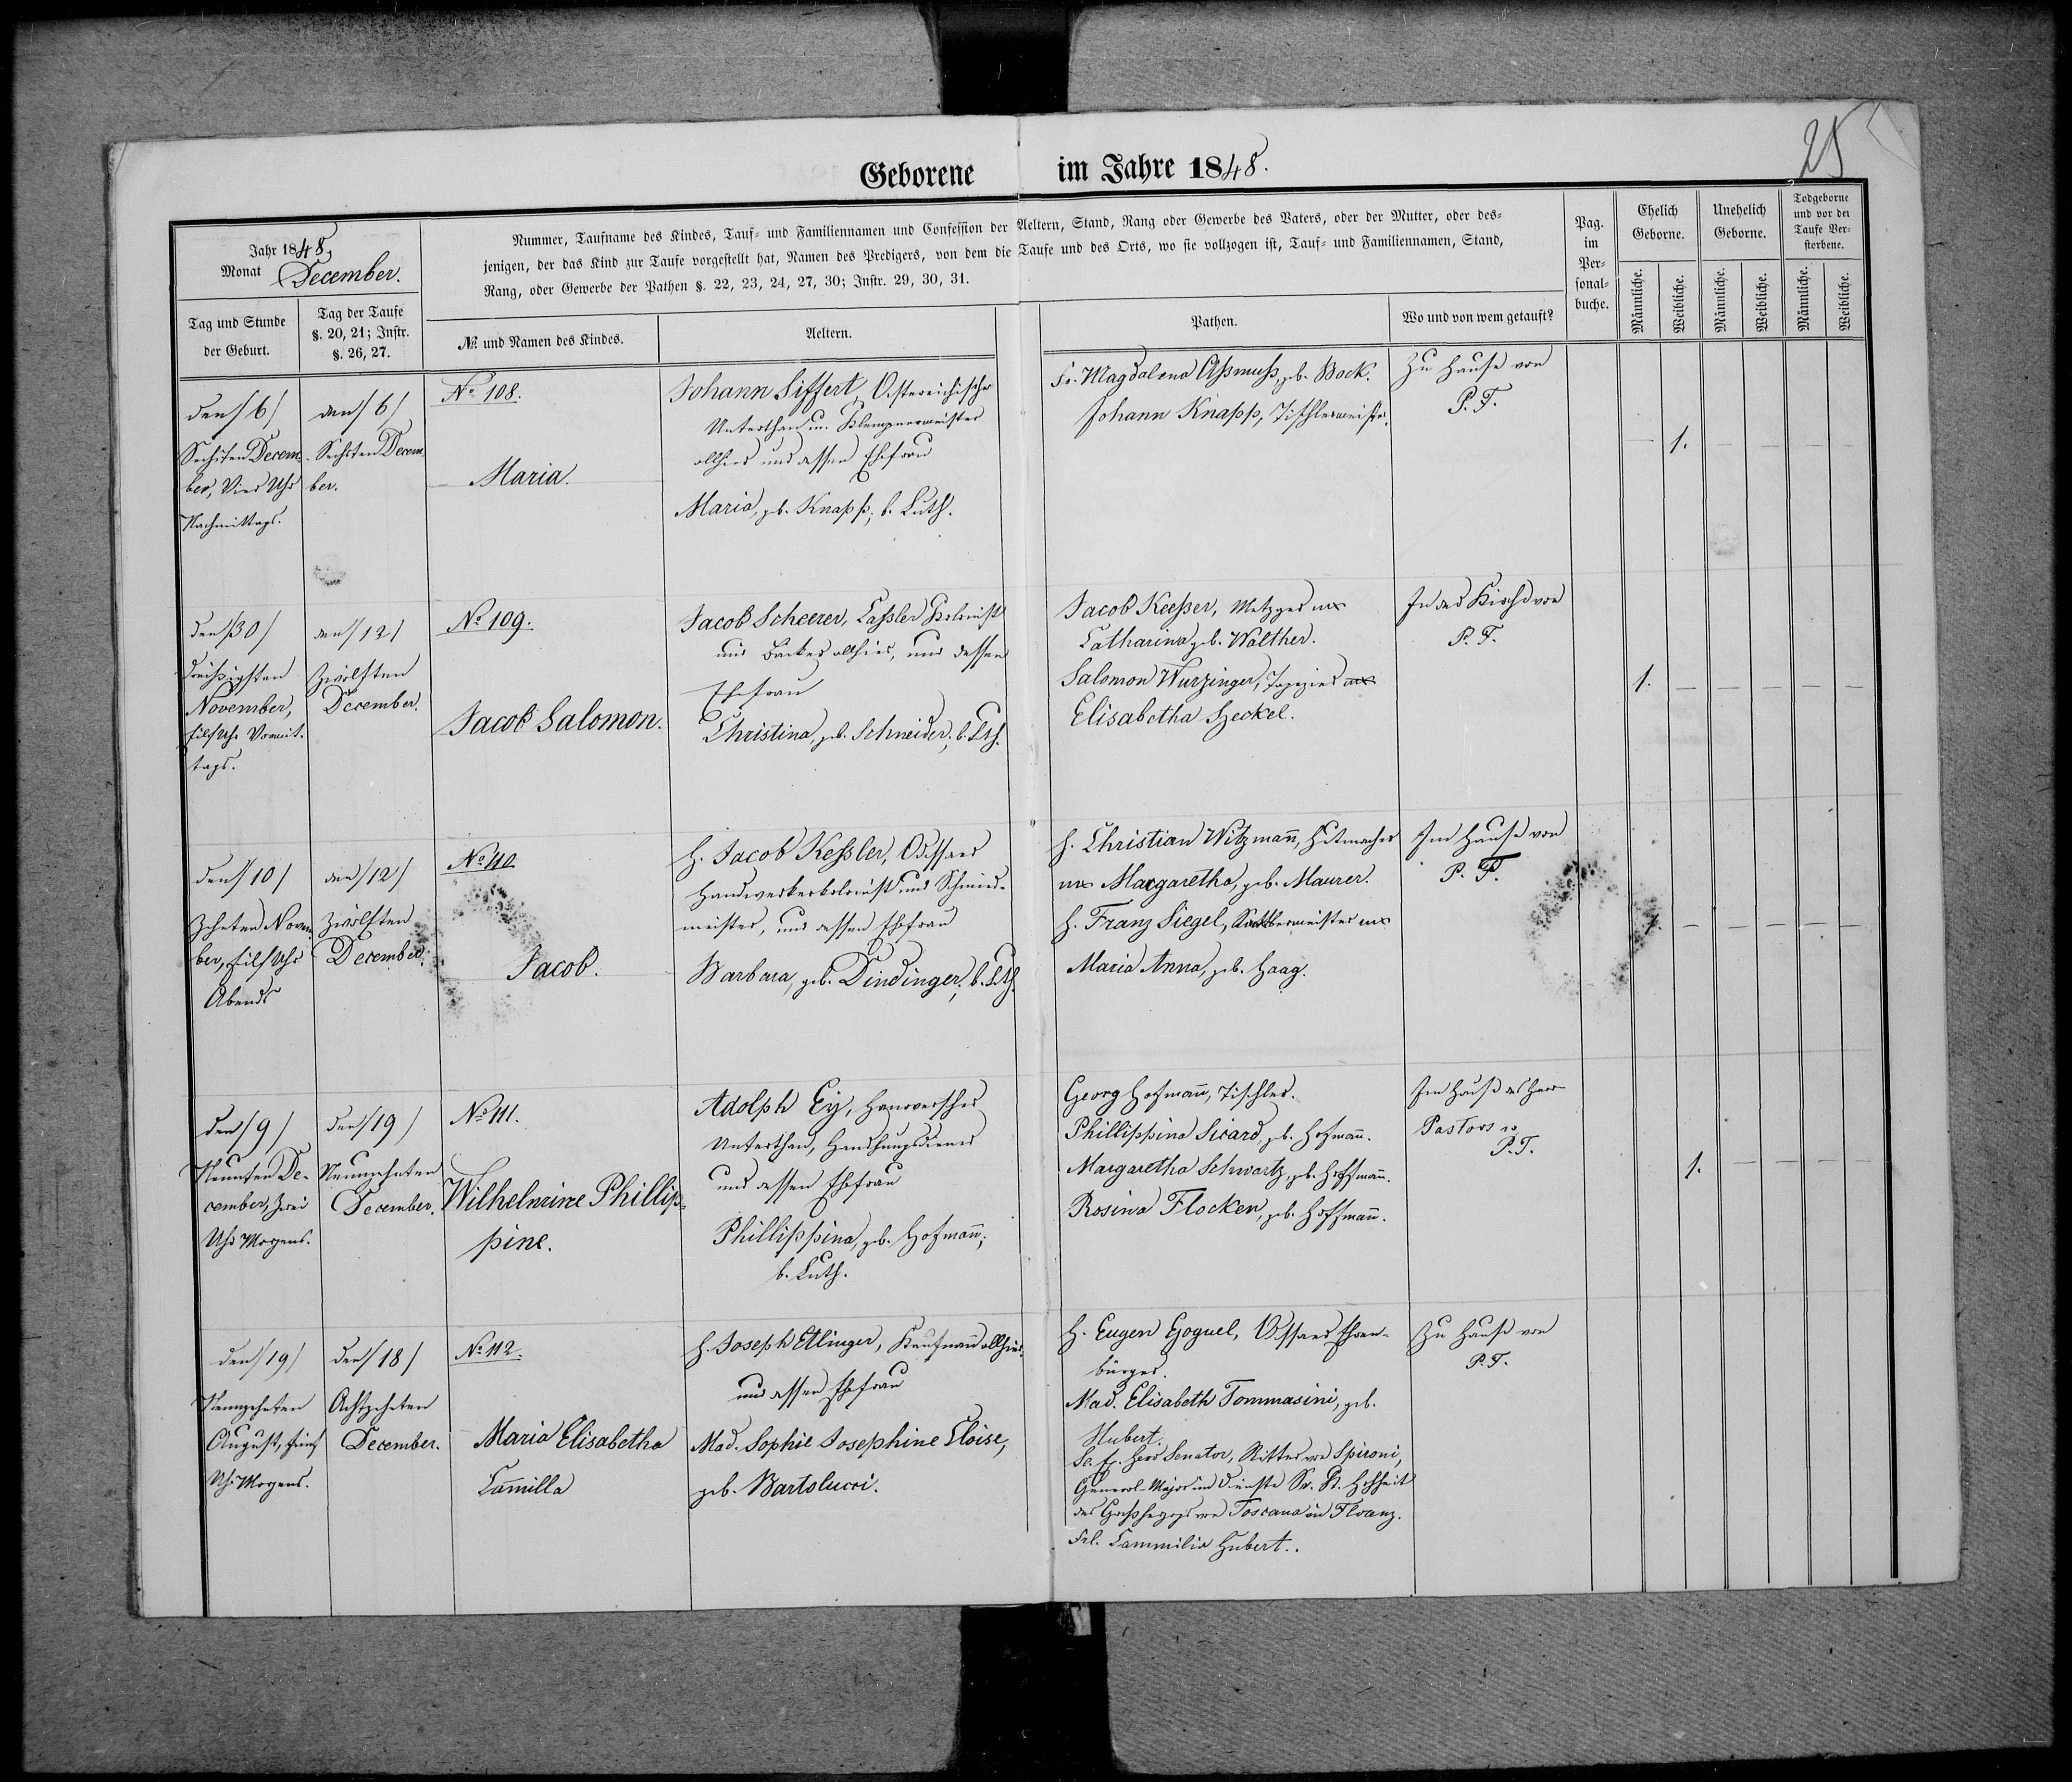 25
Geborene im Jahre 1848.
Jahr 1848,
Monat December.
Nummer, Taufname des Kindes, Tauf- und Familiennamen und Confession der Aeltern, Stand, Rang oder Gewerbe des Vaters, oder der Mutter, oder des-
jenigen, der das Kind zur Taufe vorgestellt hat, Namen des Predigers, von dem die Taufe und des Orts, wo sie vollzogen ist, Tauf- und Familiennamen, Stand,
Rang, oder Gewerbe der Pathen §. 22, 23, 24, 27, 30; Instr. 29, 30, 31.
Pag.
im
Per-
sonal-
buche.
Ehelich
Geborne.
Unehelich
Geborne.
Todgeborne
und vor der
Taufe Ver-
storbene.
Männliche.
Weibliche.
Männliche.
Weibliche.
Männliche.
Weibliche.
Tag und Stunde
der Geburt.
Tag der Taufe
§. 20, 21; Instr.
§. 26, 27.
№ und Namen des Kindes.
Aeltern.
Pathen.
Wo und von wem getauft?
den /6/
Sechsten Decem-
ber, Vier Uhr
Nachmittags.
den /6/
Sechsten Decem-
ber.
No 108.
Maria.
Johann Siffert, Östereichischer
Unterthan u. Klempnermeister
allhier und dessen Ehefrau
Maria, geb. Knapp; b. Luth.
Fr. Magdalena Aßmuß, geb. Bock.
Johann Knapp, Tischlermeister.
Zu Hause von
P. F.
1.
den /30/
dreißigsten
November,
Eilf Uhr Vormit-
tags.
den /12/
Zwölften
December.
No 109.
Jacob Salomon.
Jacob Scheerer, Caßler Kolonist
und Becker allhier, und dessen
Ehefrau
Christina, geb. Schneider; b. Lth.
Jacob Keeßer, Metzger ux
Catharina geb. Walther.
Salomon Wurzinger, Tapezier ux
Elisabetha Heckel.
In der Kirche von
P. F.
1.
den /10/
Zehnten Novem-
ber, Eilf Uhr
Abends
den /12/
Zwölften
December.
No 110.
Jacob.
H. Jacob Keßler, Odessaer
Handwerkerkolonist und Schmied-
meister, und dessen Ehefrau
Barbara, geb. Dindinger; b. Lth.
H. Christian Witzmann, Hutmacher
ux Margaretha, geb. Maurer.
H. Franz Siegel, ux
Maria Anna, geb. Haag.
Im Hause von
P. F.
1.
den /9/
Neunten De-
cember, Zwei
Uhr Morgens.
den /19/
Neunzehnten
December.
No 111.
Wilhelmine Phillip-
pine.
Adolph Ey, Hanoverscher
Unterthan, Handlungsdiener
und dessen Ehefrau
Phillippina, geb. Hofmann;
b. Luth.
Georg Hofmann, Tischler.
Phillippina Sicard, geb. Hofmann.
Margaretha Schwartz, geb. Hoffmann.
Rosina Flocken, geb. Hoffmann.
Im Hause des Herrn
Pastors
P. F.
1.
den /19/
Neunzehnten
August, fünf
Uhr Morgens.
den /18/
Achtzehnten
December.
No 112.
Maria Elisabetha
Camilla
H. Joseph Etlinger, Kaufmann allhier
und dessen Ehefrau
Mad. Sophie Josephine Eloise,
geb. Bartolucci.
H. Eugen Goguel, Odessaer Ehren-
bürger.
Mad. Elisabeth Tommasini, geb.
Hubert.
Se. Ex. Herr Senator, Ritter von Spironi,
General-Major im Dienste Sr. K. Hohheit
des Großherzogs von Toscana in Floranz.
Frl. Cammilia Hubert.
Zu Hause von
P. F.